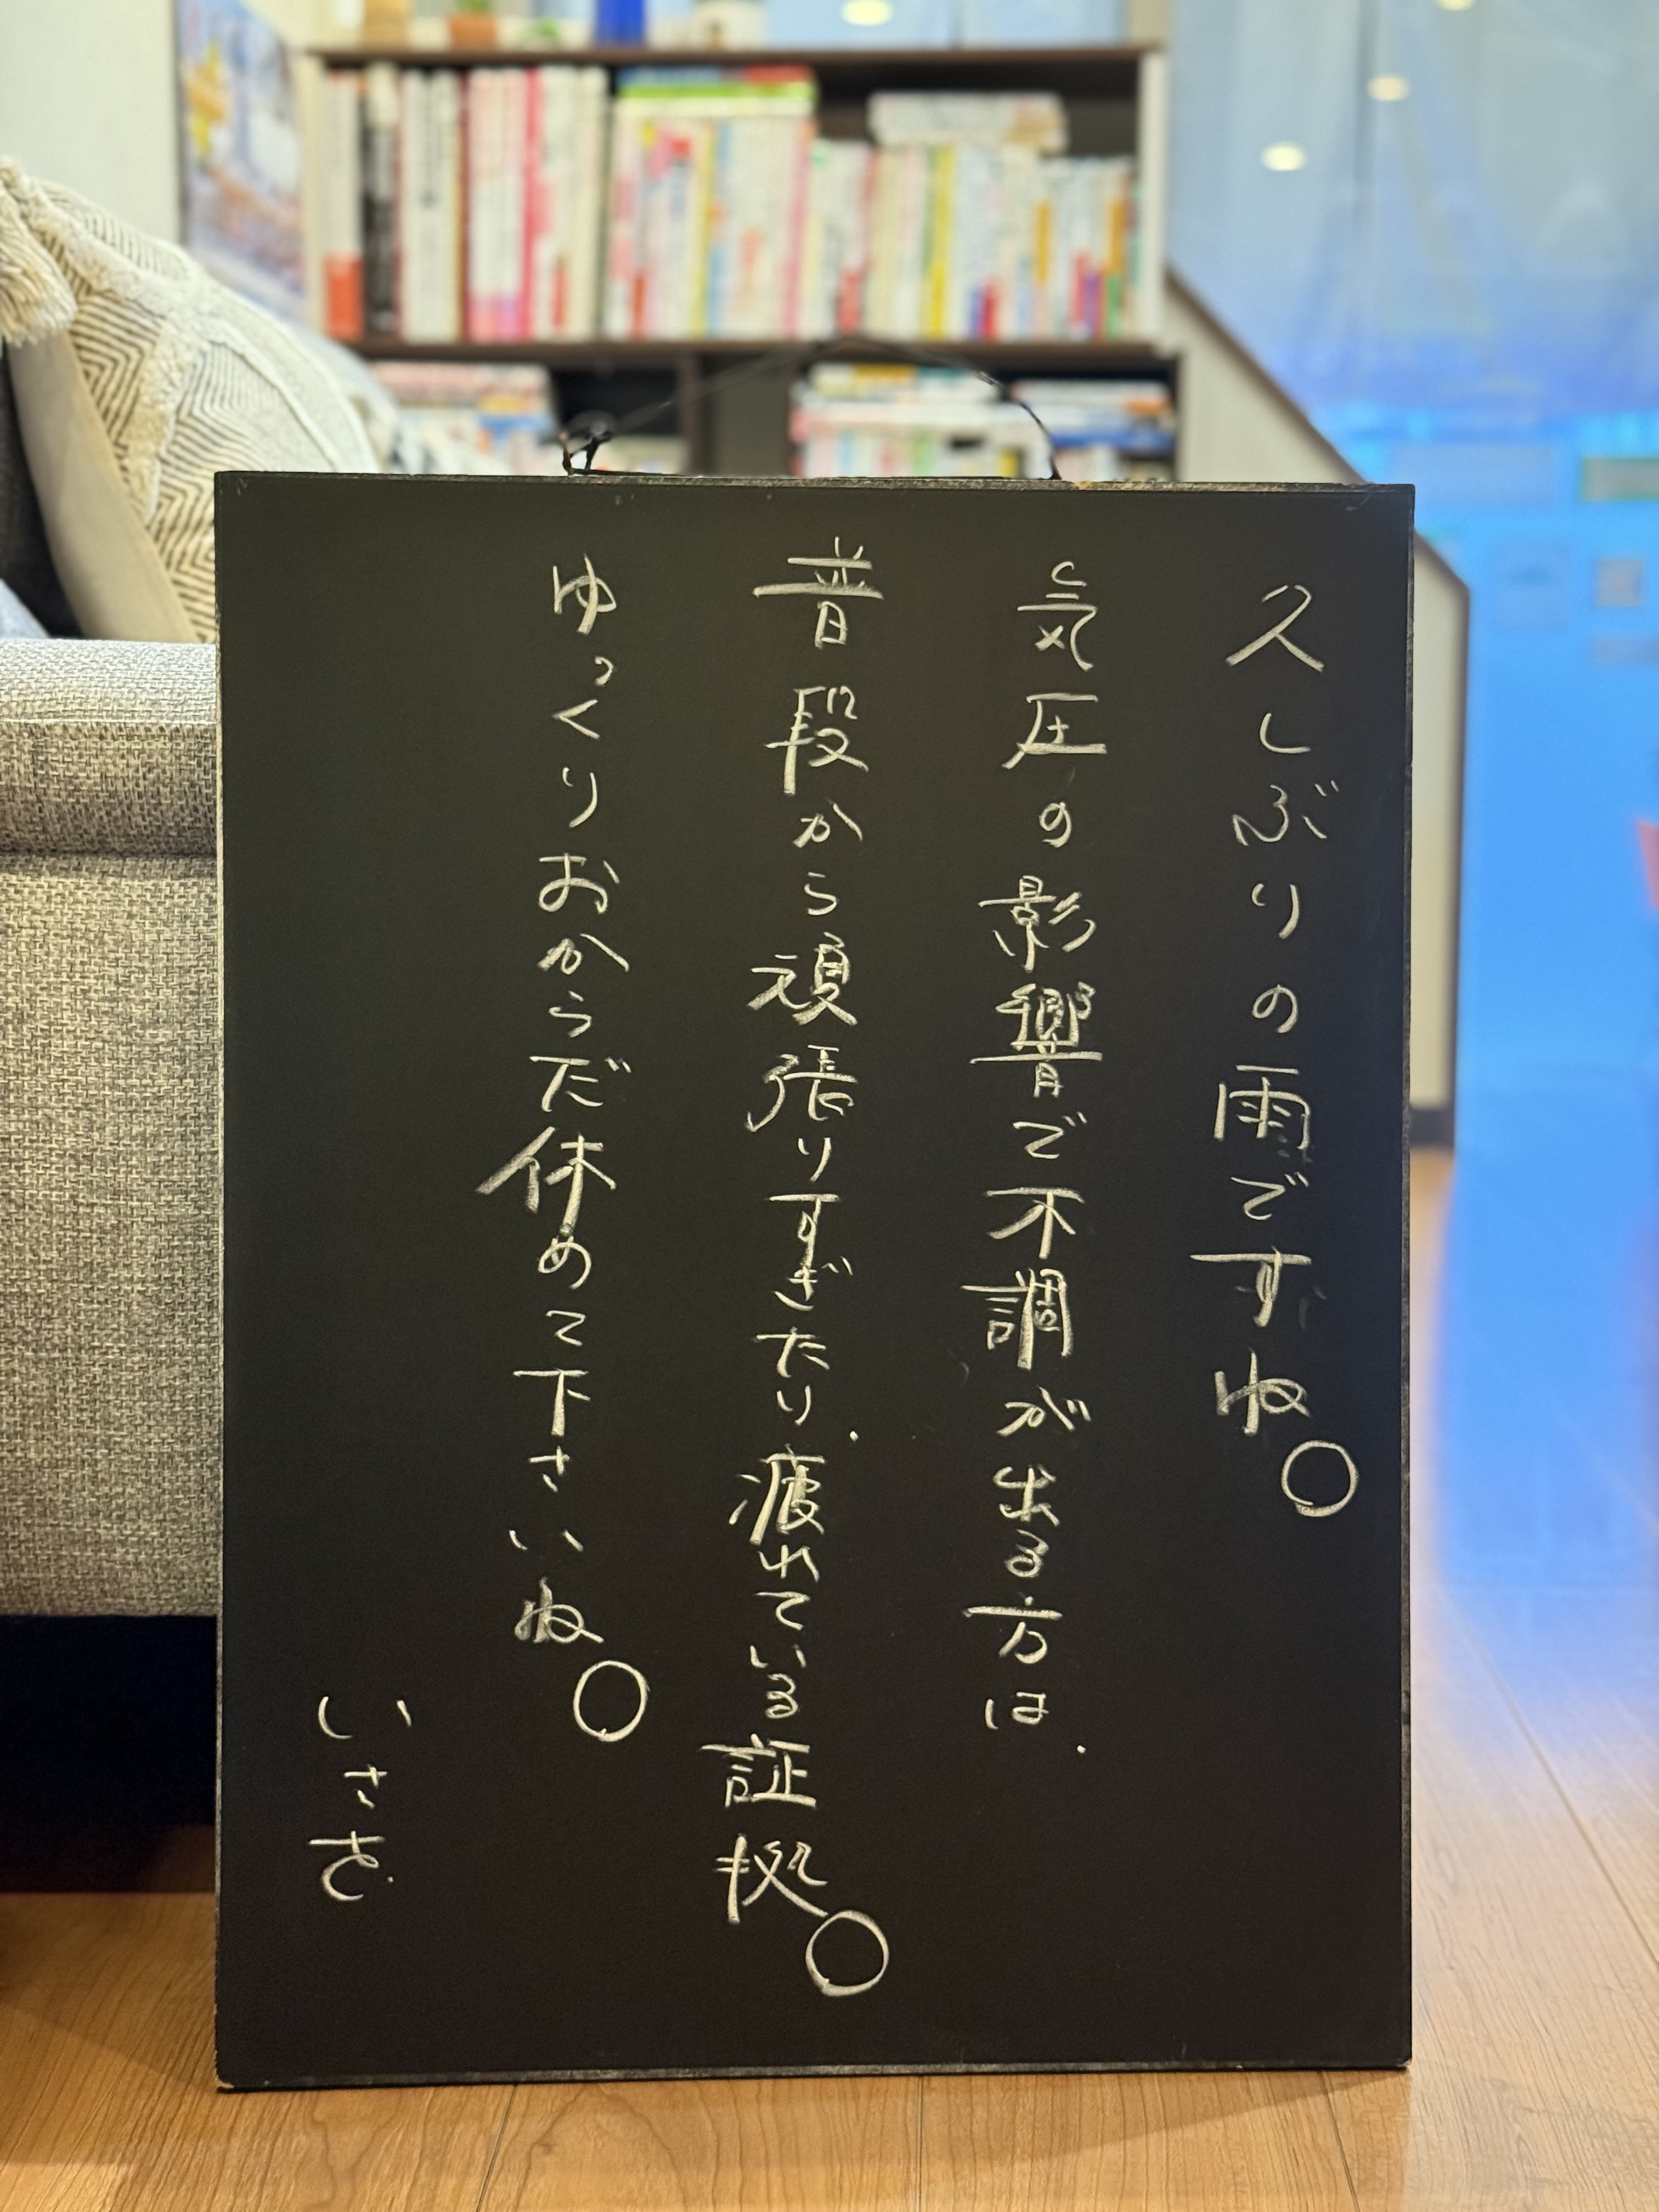 久しぶりの雨ですね。
気圧の影響で不調が出る方は、
普段から頑張りすぎたり、疲れている証拠。
ゆっくりおからだ休めて下さいね。
いさを